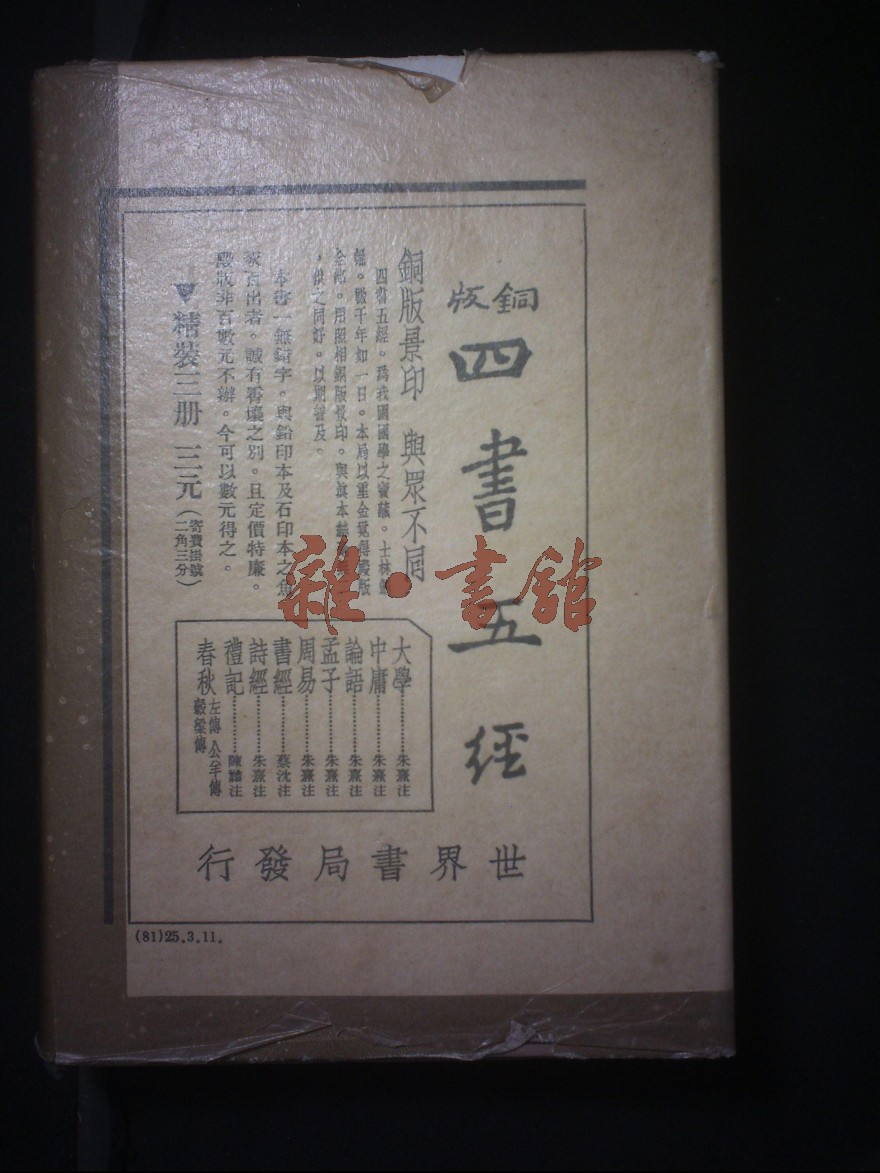 銅版
四書五經
銅版景印　與眾不同
四書五經。爲我國國學之寶藏。士林
。數千年如一日。本局以重金覓得殿版
全部。用照相銅版景印。與真本
。供之同好。以期普及。
本書一無錯字。與鉛印本及石印本之魚
豕百出者。誠有霄壤之別。且定價特廉。
殿版非百數元不辦。今可以數元得之。
▼精裝三册 三元（寄費掛號二角三分）
大學…………朱熹注
中庸…………朱熹注
論語…………朱熹注
孟子…………朱熹注
周易…………朱熹注
書經…………蔡沈注
詩經…………朱熹注
禮記…………陳澔注
春秋 左傳 公羊傳 穀梁傳
世界書局發行
(81)25.3.11.
雜·書館